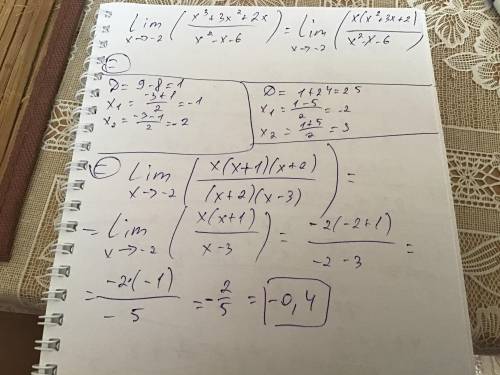 lim x→-2 (x³+3x²+2x / x²-x-6) = lim x→-2 (x(x²+3x+2) / x²-x-6)
=
D = 9-8=1
x₁ = -3+1/2 = -1
x₂ = -3-1/2 = -2
D = 1+24=25
x₁ = 1-5/2 = -2
x₂ = 1+5/2 = 3
= lim x→-2 (x(x+1)(x+2) / (x+2)(x-3)) =
= lim x→-2 (x(x+1) / x-3) = -2(-2+1) / -2-3 =
= -2·(-1) / -5 = -2/5 = -0,4